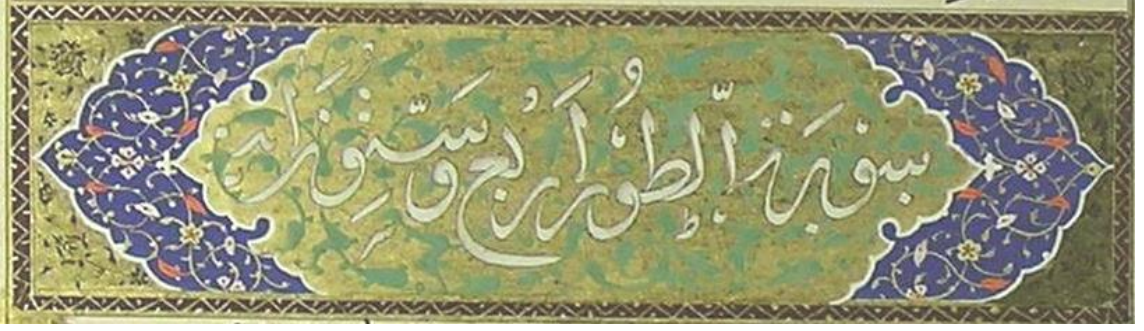 سورة الطور اربع وستون اية